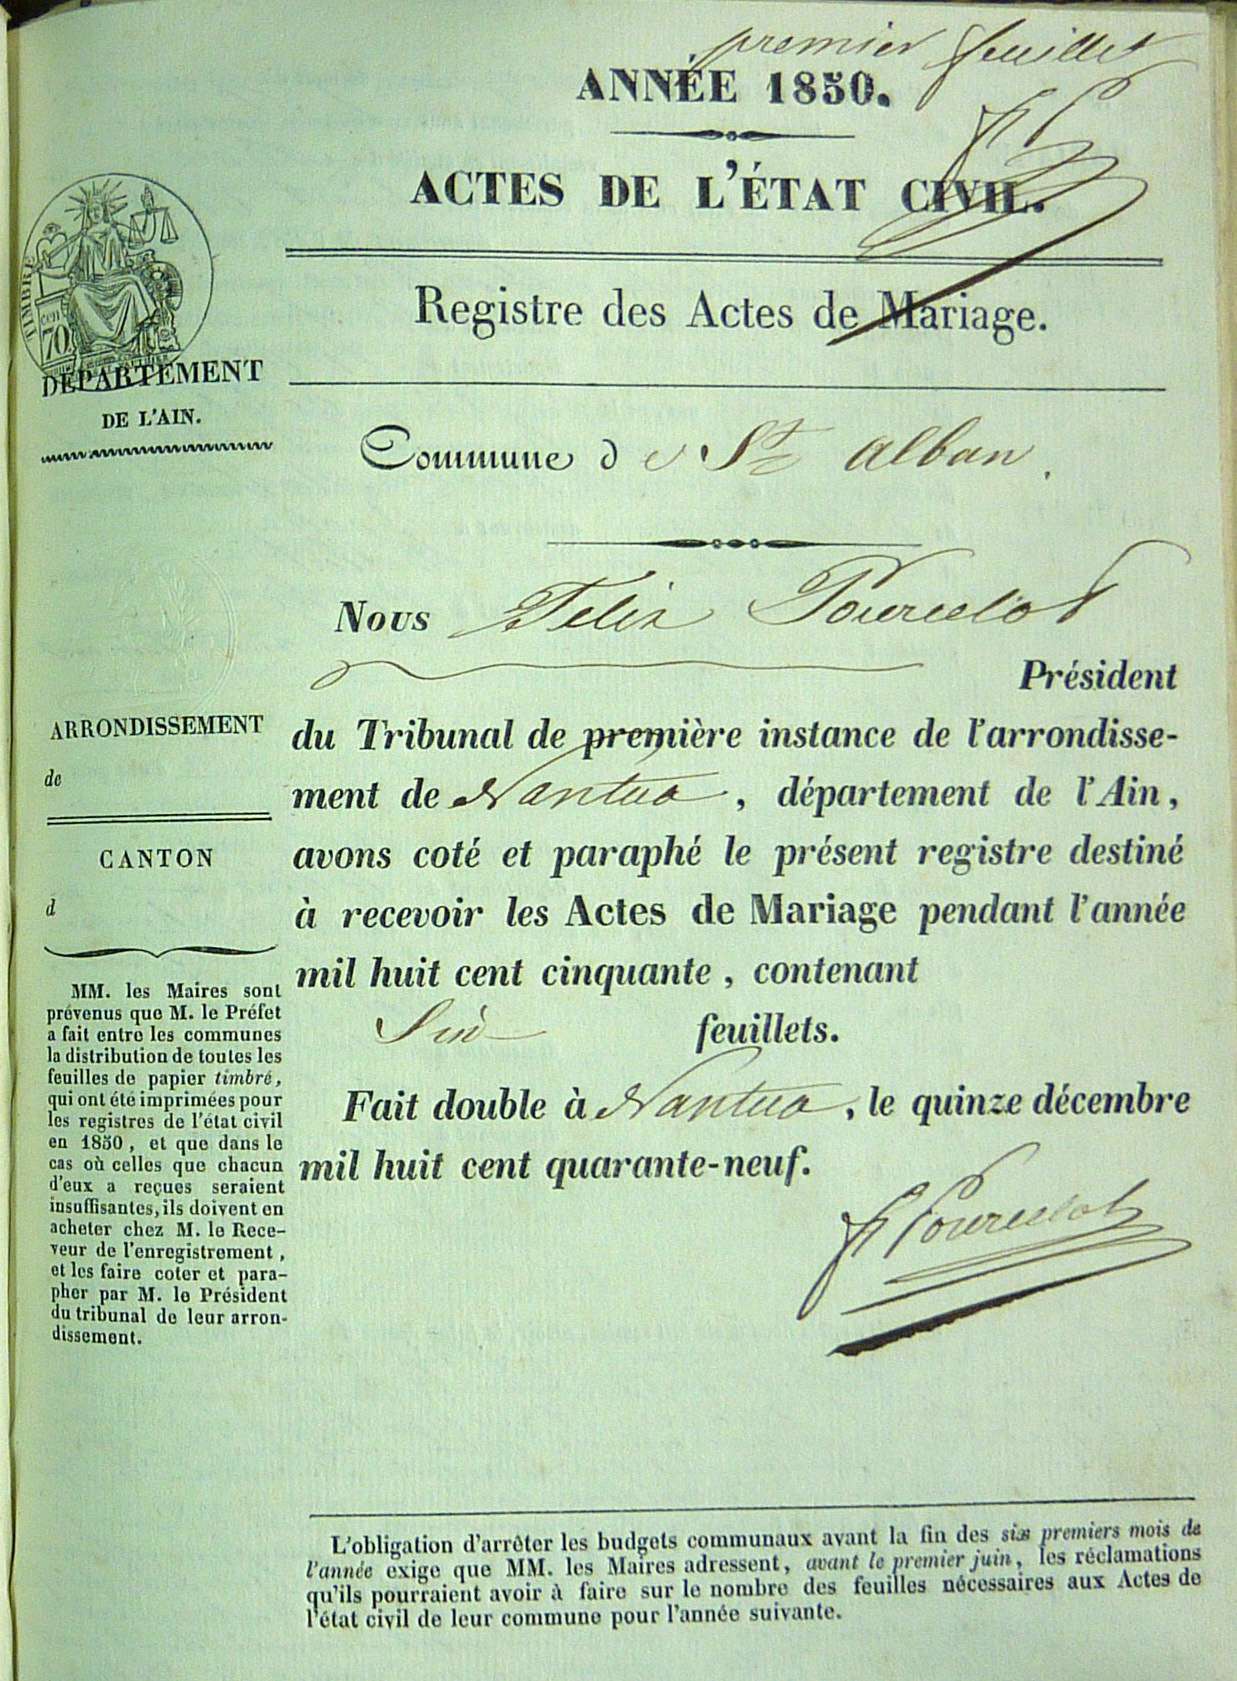 premier feuillet
ANNÉE 1850.
FP
ACTES DE L'ÉTAT CIVIL.
Registre des Actes de Mariage.
TIMBRE
cen
70
DÉPARTEMENT
DE L'AIN.
Commune de St alban.
Nous Felix Pourcelot
Président
du Tribunal de première instance de l'arrondisse-
ment de Nantua, département de l'Ain,
avons coté et paraphé le présent registre destiné
à recevoir les Actes de Mariage pendant l'année
mil huit cent cinquante, contenant
Six feuillets.
Fait double à Nantua, le quinze décembre
mil huit cent quarante-neuf.
F Pourcelot
ARRONDISSEMENT
de
CANTON
d
MM. les Maires sont
prévenus que M. le Préfet
a fait entre les communes
la distribution de toutes les
feuilles de papier timbré,
qui ont été imprimées pour
les registres de l'état civil
en 1850, et que dans le
cas où celles que chacun
d'eux a reçues seraient
insuffisantes, ils doivent en
acheter chez M. le Rece-
veur de l'enregistrement,
et les faire coter et para-
pher par M. le Président
du tribunal de leur arron-
dissement.
L'obligation d'arrêter les budgets communaux avant la fin des six premiers mois de
l'année exige que MM. les Maires adressent, avant le premier juin, les réclamations
qu'ils pourraient avoir à faire sur le nombre des feuilles nécessaires aux Actes de
l'état civil de leur commune pour l'année suivante.